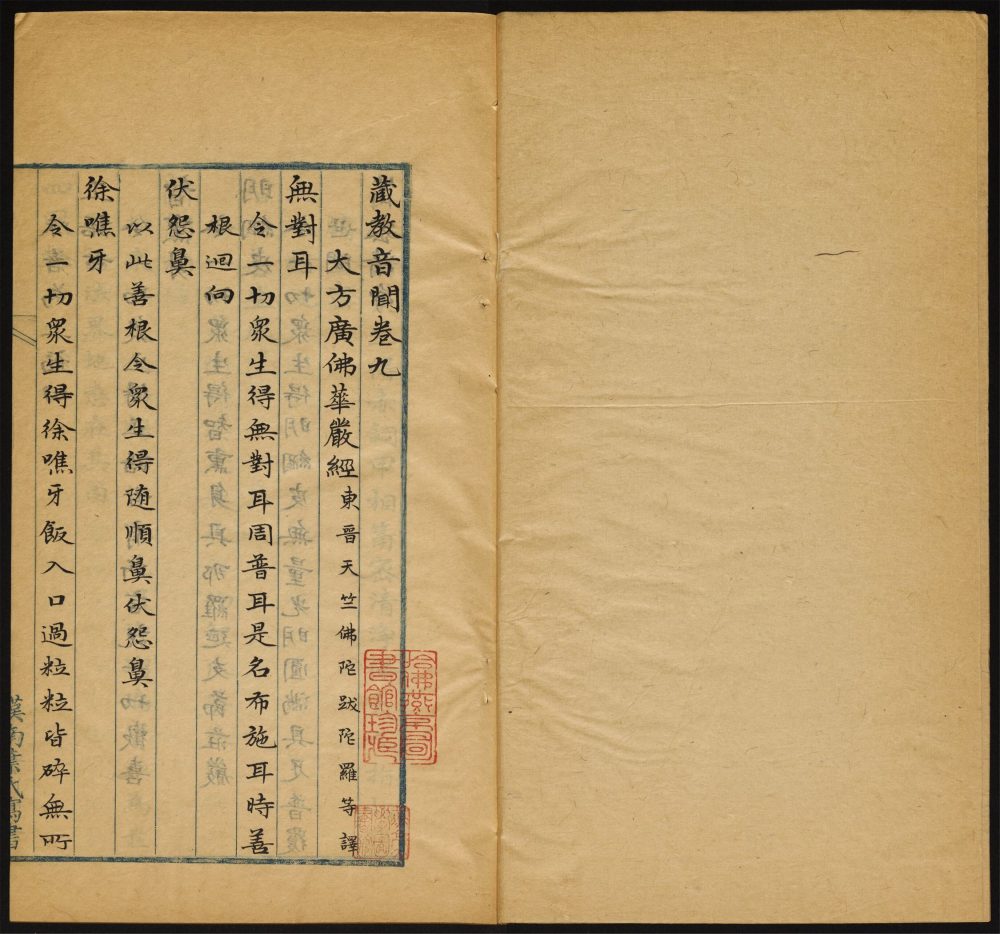 藏教音聞卷九
大方廣佛華嚴經東晉天竺佛陀跋陀羅等譯
無對耳
令一切眾生得無對耳周普耳是名布施耳時善
根迴向
伏怨鼻
以此善根令眾生得随順鼻伏怨鼻
徐噍牙
令一切眾生得徐噍牙飯入口過粒粒皆碎無所
葉氏寫書
哈佛燕京圖書館珍藏